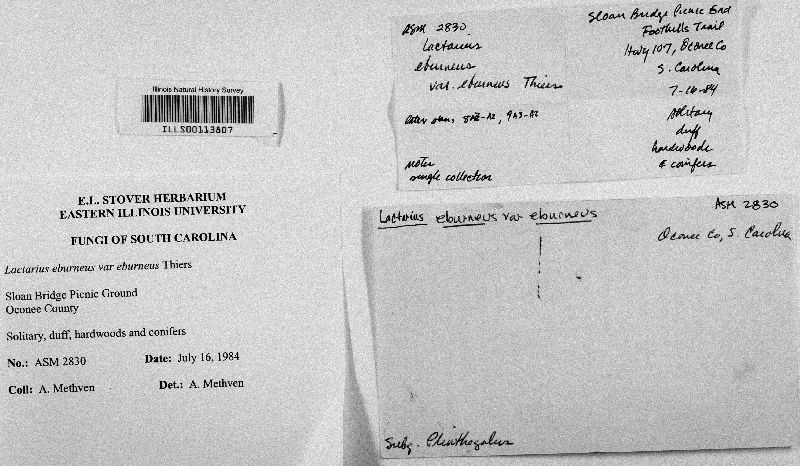 Illinois Natural History Survey
ILLS00113807
E.L. STOVER HERBARIUM
EASTERN ILLINOIS UNIVERSITY
FUNGI OF SOUTH CAROLINA
Lactarius eburneus var eburneus Thiers
Sloan Bridge Picnic Ground
Oconee County
Solitary, duff, hardwoods and conifers
No.: ASM 2830 Date: July 16, 1984
Coll: A. Methven Det.: A. Methven
ASM 2830
Lactarius
eburneus
var. eburneus Thiers
notes
single collection
Sloan Bridge Picnic Grd
Foothills Trail
Hwy 107, Oconee Co
S. Carolina
7-16-84
solitary
duff
hardwoods
& conifers
Lactarius eburneus var eburneus ASM 2830
Oconee Co, S. Carolina
Subg. Plinthogalus